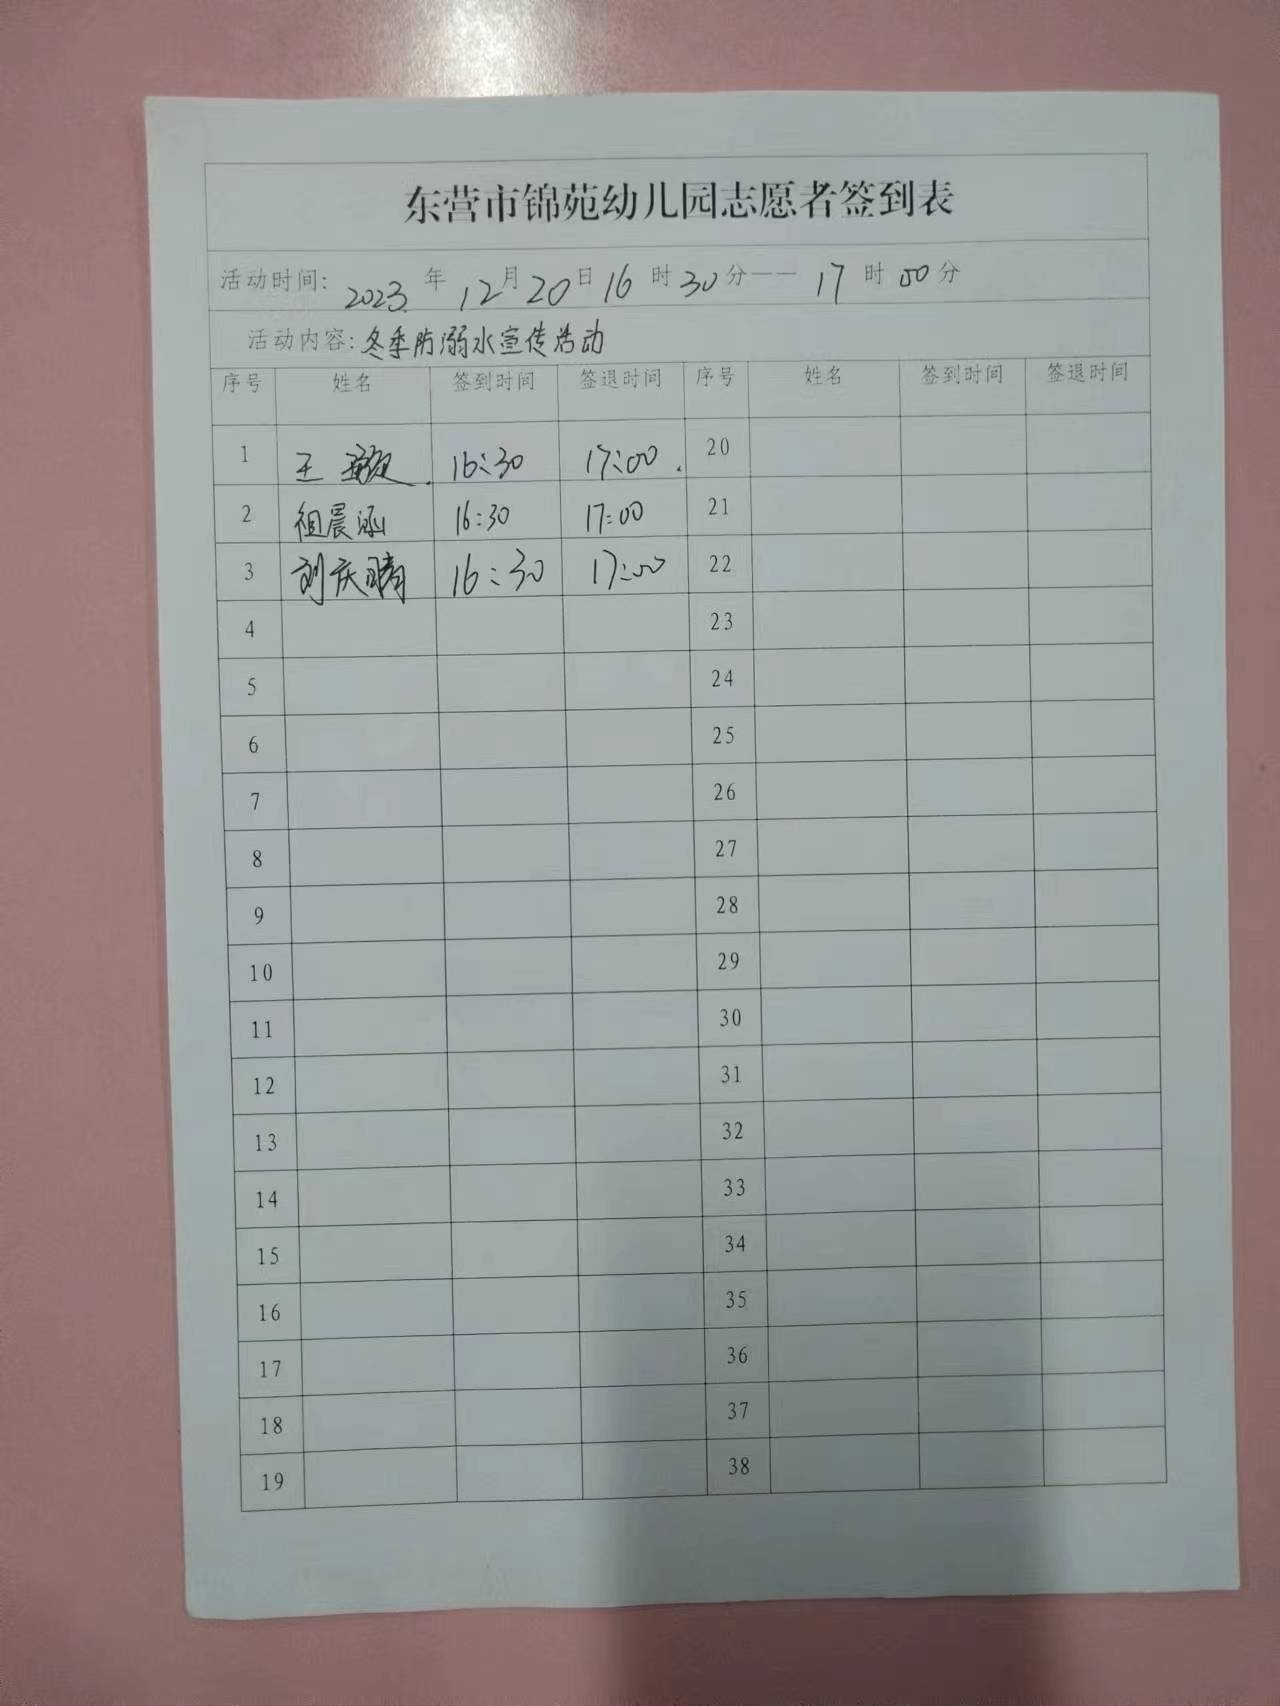 东营市锦苑幼儿园志愿者签到表
活动时间: 2023. 年 12 月 20 日 16 时 30 分—— 17 时 00 分
活动内容: 冬季防溺水宣传活动
序号 姓名 签到时间 签退时间 序号 姓名 签到时间 签退时间
1 王 16:30 17:00. 20
2 祖晨涵 16:30 17:00 21
3 刘庆晴 16:30 17:00 22
4 23
5 24
6 25
7 26
8 27
9 28
10 29
11 30
12 31
13 32
14 33
15 34
16 35
17 36
18 37
19 38